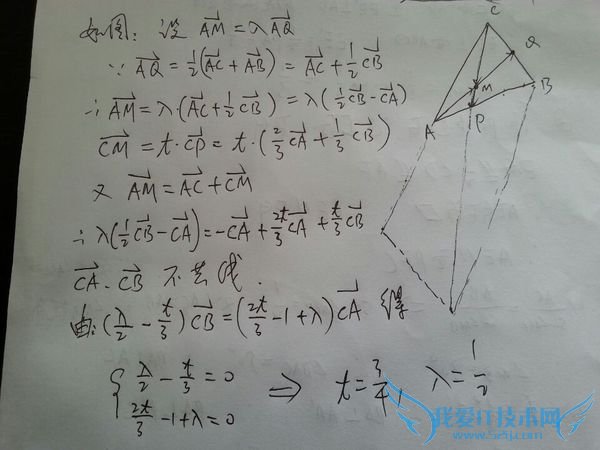 如图：设 AM→ = λAQ→
∵ AQ→ = 1/2(AC→ + AB→) = AC→ + 1/2 CB→
∴ AM→ = λ·(AC→ + 1/2 CB→) = λ(1/2 CB→ - CA→)
CM→ = t·CP→ = t·(2/3 CA→ + 1/3 CB→)
又 AM→ = AC→ + CM→
∴ λ(1/2 CB→ - CA→) = -CA→ + 2t/3 CA→ + t/3 CB→
CA→、CB→ 不共线.
由: (λ/2 - t/3) CB→ = (2t/3 - 1 + λ) CA→ 得
{ λ/2 - t/3 = 0
2t/3 - 1 + λ = 0
⇒ t = 3/4, λ = 1/2
C
Q
M
B
A
P
我爱IT技术网
www.52ij.com